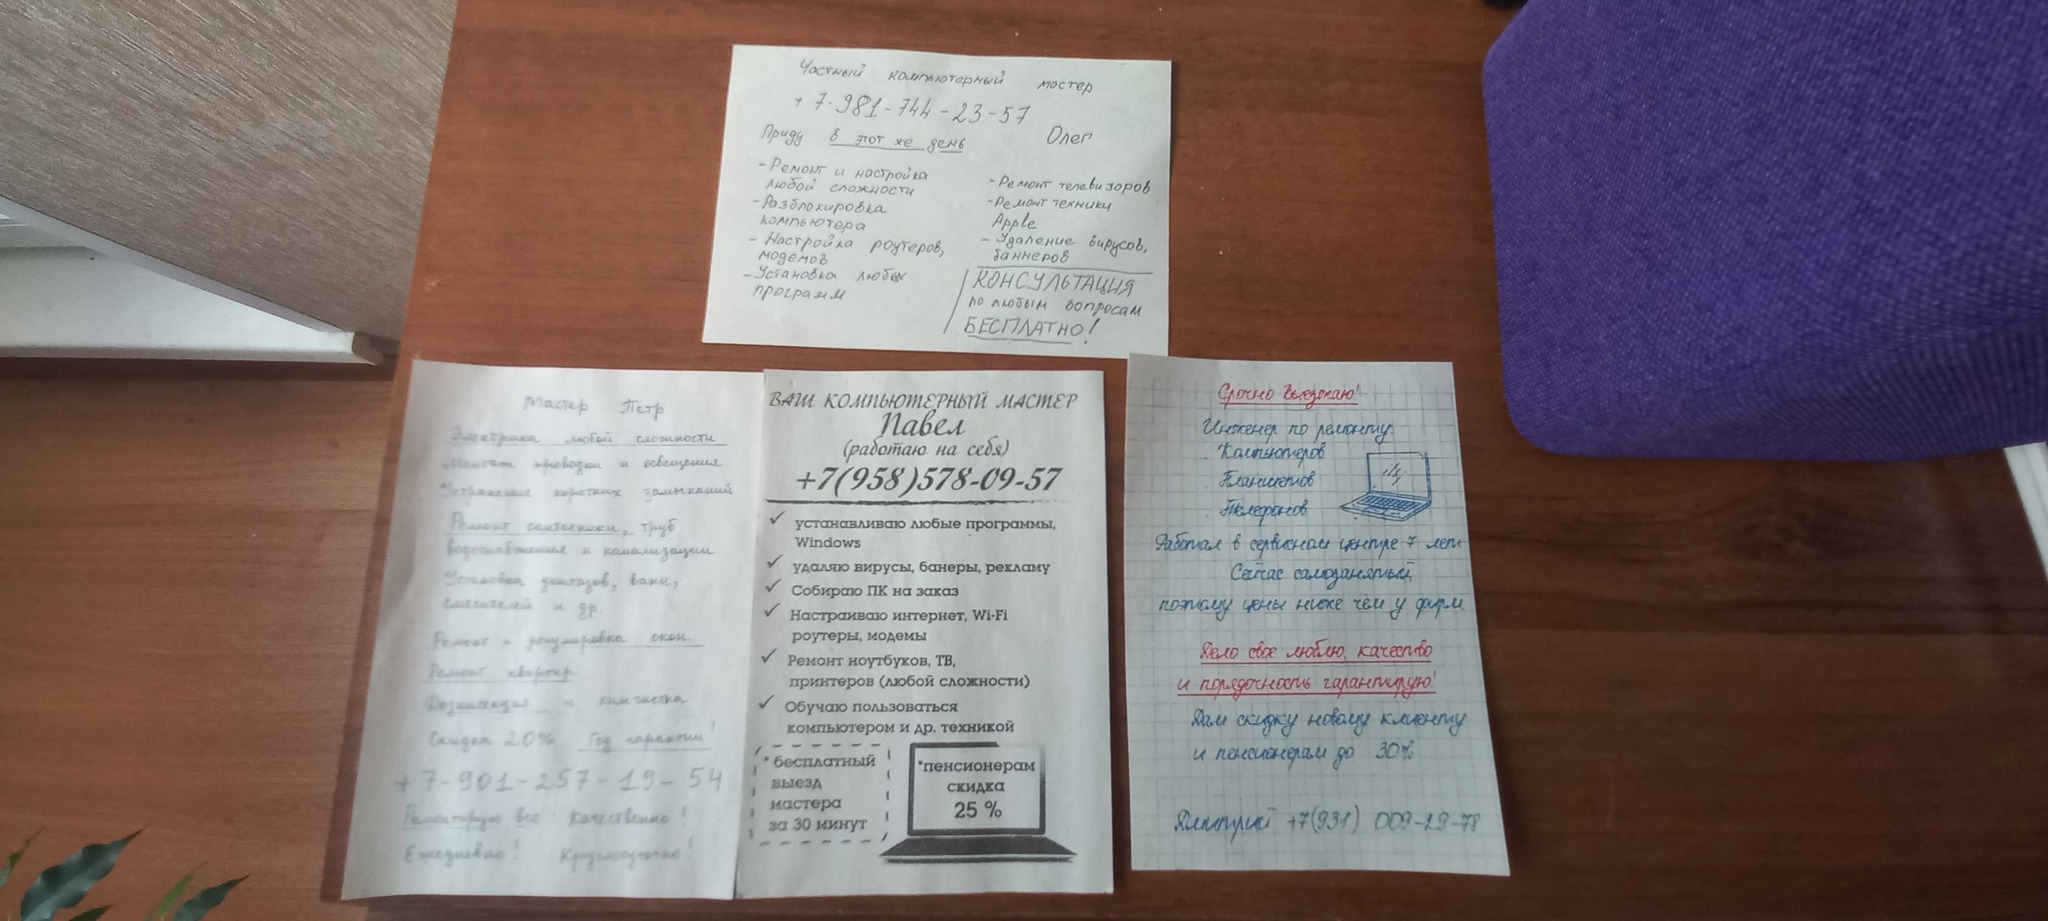 Частный компьютерный мастер
+7-981-744-23-57
Олег
Приду в этот же день
- Ремонт и настройка
любой сложности
- Разблокировка
компьютера
- Настройка роутеров,
модемов
- Установка любых
программ
- Ремонт телевизоров
- Ремонт техники
Apple
- Удаление вирусов,
баннеров
КОНСУЛЬТАЦИЯ
по любым вопросам
БЕСПЛАТНО!
Мастер Петр
Электрика любой сложности
Монтаж проводки и освещения
Устранение коротких замыканий
Ремонт сантехники, труб
водоснабжения и канализации
Установка унитазов, ванн,
смесителей и др.
Ремонт и регулировка окон.
Ремонт квартир.
Дезинсекция и химчистка
Скидка 20% Год гарантии!
+7-901-257-19-54
Ремонтирую все! Качественно!
Ежедневно! Круглосуточно!
ВАШ КОМПЬЮТЕРНЫЙ МАСТЕР
Павел
(работаю на себя)
+7(958)578-09-57
✓ устанавливаю любые программы,
Windows
✓ удаляю вирусы, банеры, рекламу
✓ Собираю ПК на заказ
✓ Настраиваю интернет, Wi-Fi
роутеры, модемы
✓ Ремонт ноутбуков, ТВ,
принтеров (любой сложности)
✓ Обучаю пользоваться
компьютером и др. техникой
* бесплатный
выезд
мастера
за 30 минут
*пенсионерам
скидка
25 %
Срочно Выезжаю!
Инженер по ремонту
. Компьютеров
. Планшетов
. Телефонов
Работал в сервисном центре 7 лет
Сейчас самозанятый,
поэтому цены ниже чем у фирм
Дело свое люблю, качество
и порядочность гарантирую!
Дам скидку новому клиенту
и пенсионерам до 30%
Дмитрий +7(931) 009-29-78